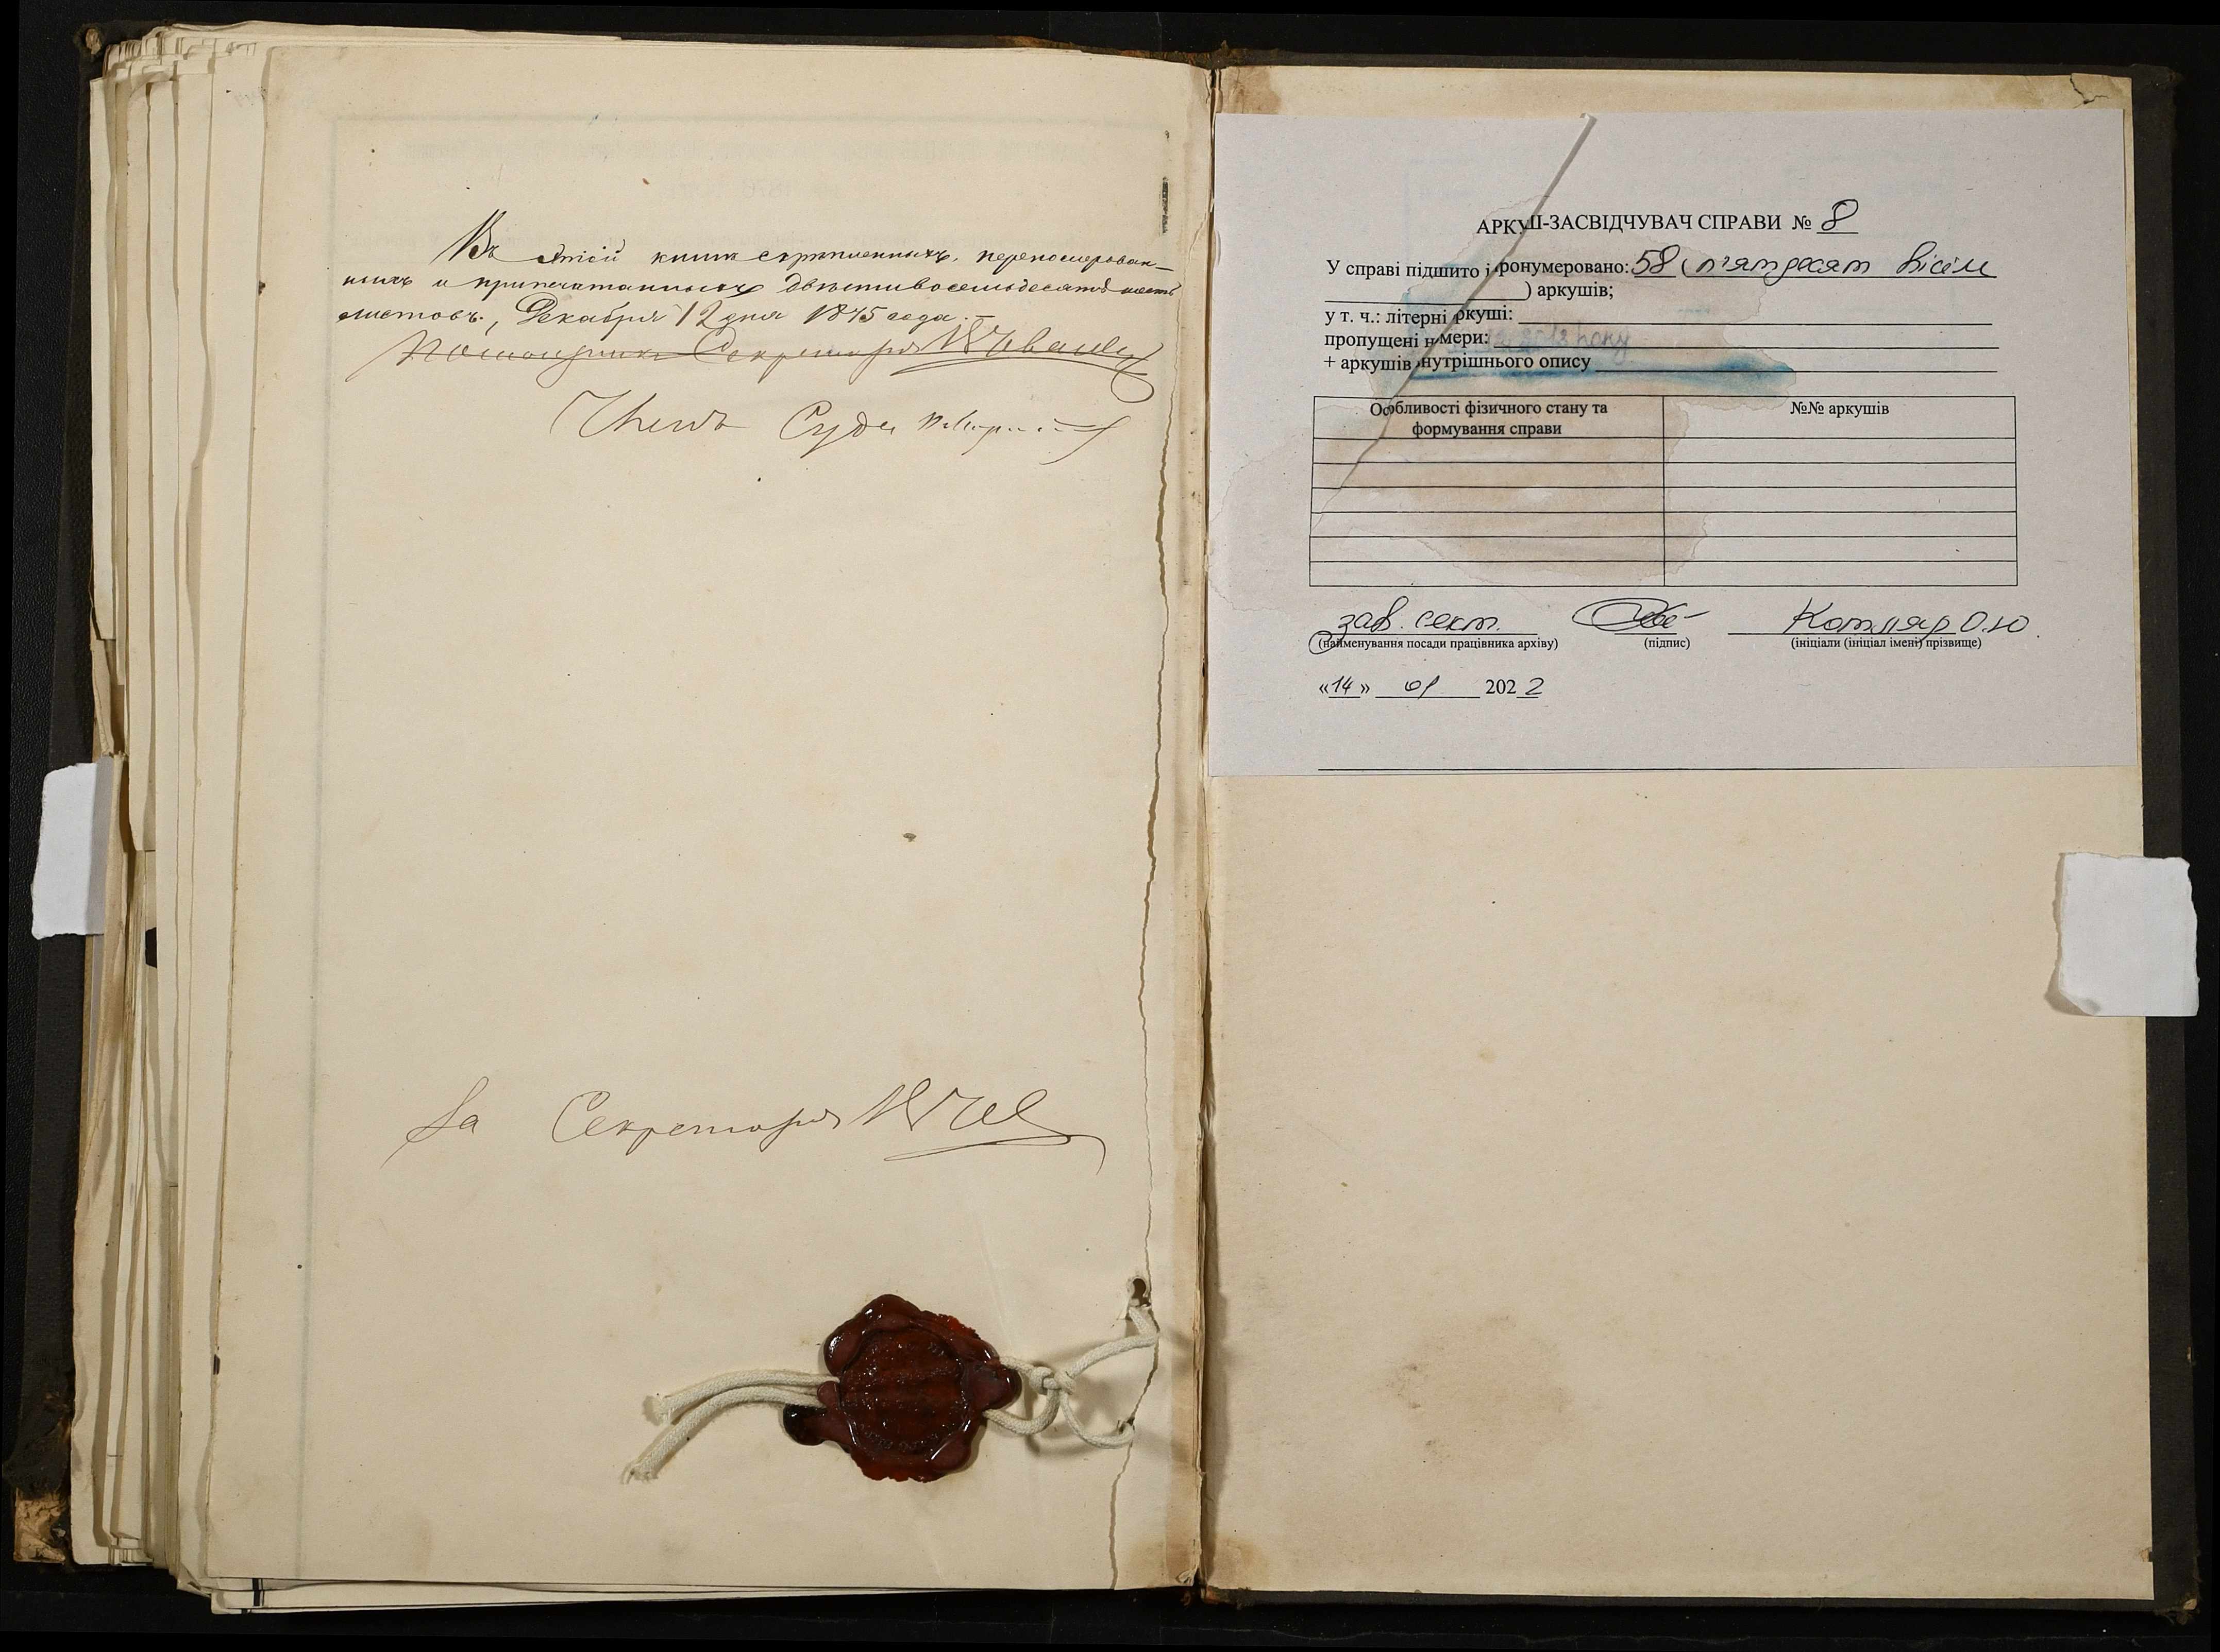 Въ этой книге скрепленныхъ, перенумерован-
ныхъ и припечатанныхъ двѣстивосемьдесятъ шесть
листовъ., Декабря 12 дня 1875 года.
Помощникъ Секретаря
Членъ Суда
За Секретаря
АРКУШ-ЗАСВІДЧУВАЧ СПРАВИ № 8
У справі підшито і пронумеровано: 58 (п'ятдесят вісім
) аркушів;
у т. ч.: літерні аркуші:
пропущені номери:
+ аркушів внутрішнього опису
Особливості фізичного стану та формування справи
№№ аркушів
зав. сект. Котляр О.Ю.
(найменування посади працівника архіву) (підпис) (ініціали (ініціал імені) прізвище)
«14» 01 2022